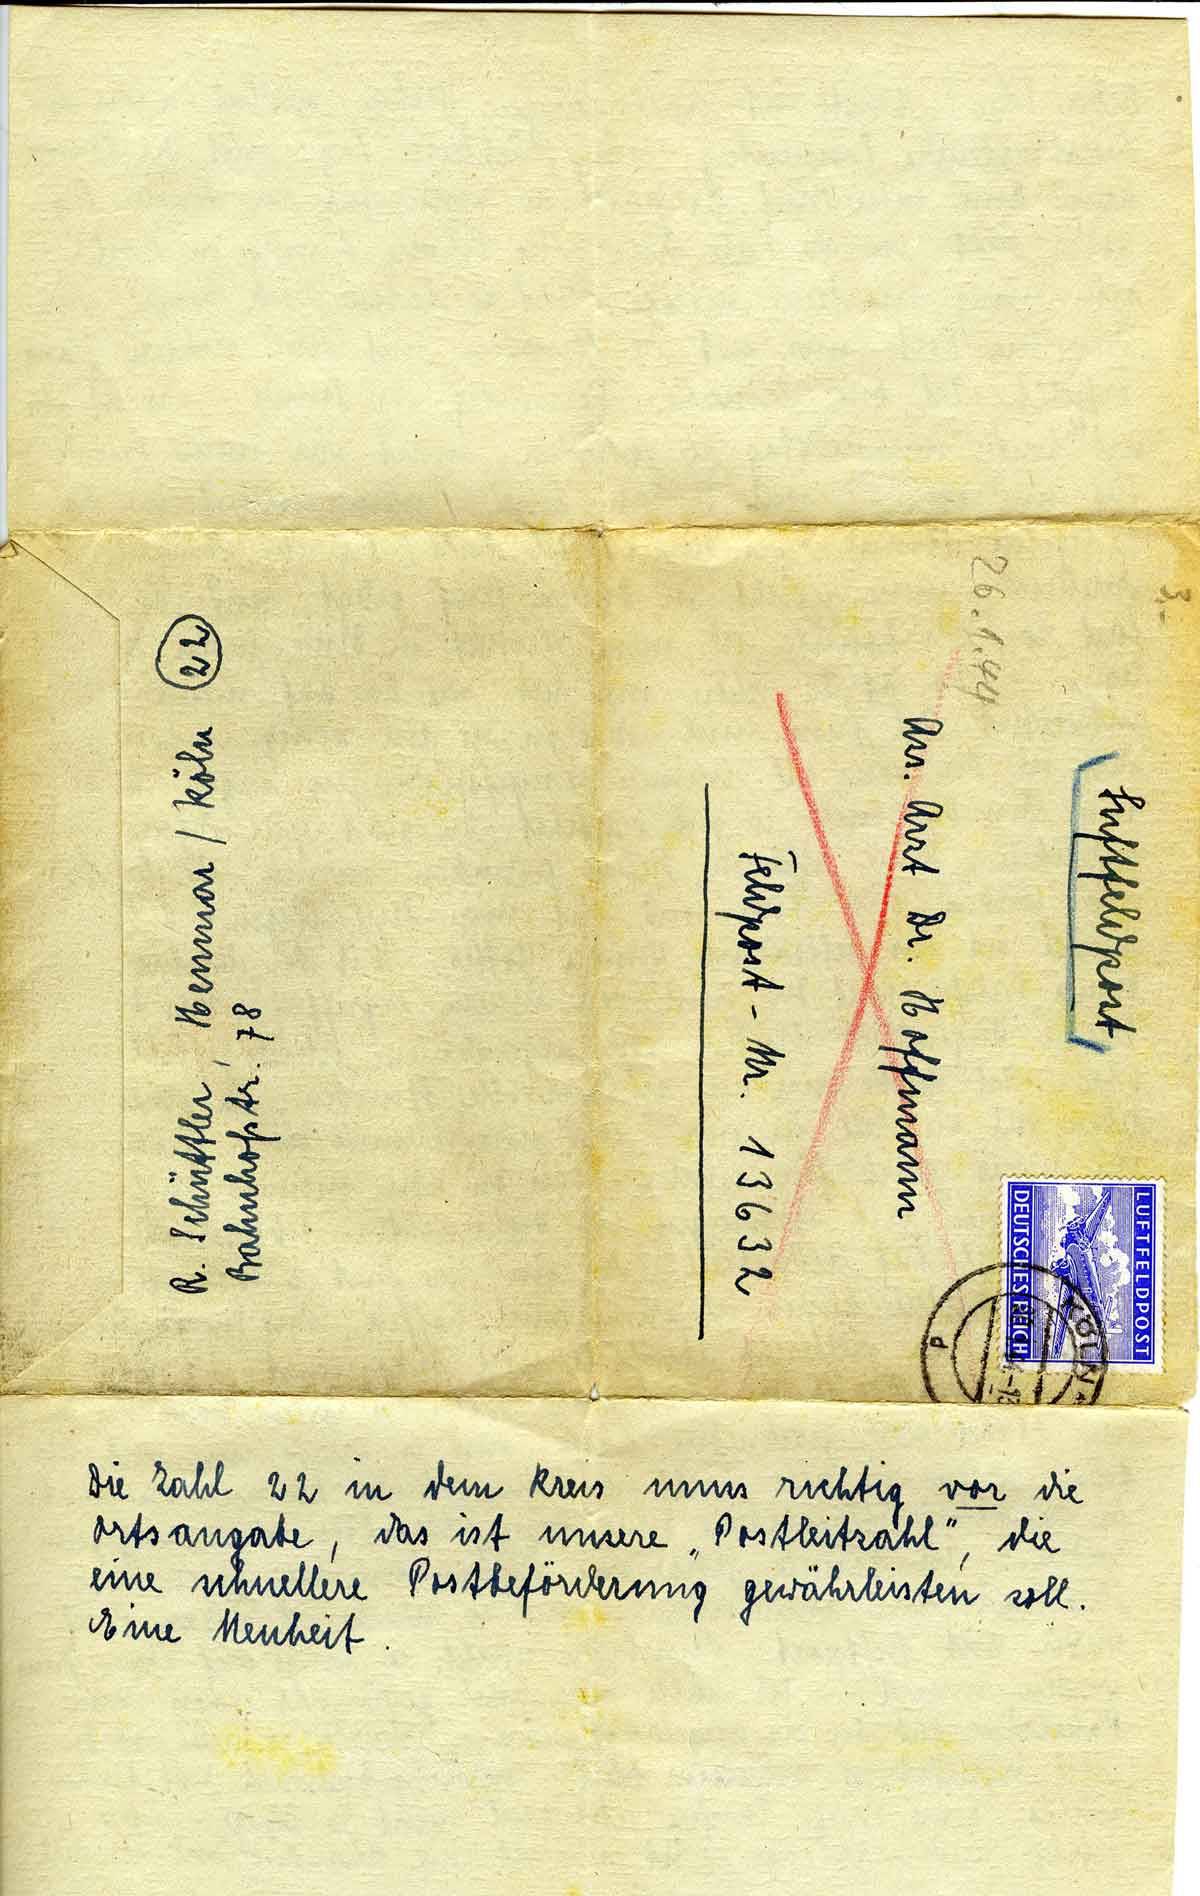 3.-
26.1.44
Luftfeldpost
Ass. Arzt Dr. Hoffmann
Feldpost-Nr. 13632
LUFTFELDPOST
DEUTSCHES REICH
KÖLN
d
R. Schüttler, Hennar / Köln 22
Bahnhofstr. 78
Die Zahl 22 in dem Kreis muss richtig vor die
Ortsangabe, das ist unsere „Postleitzahl", die
eine schnellere Postbeförderung gewährleisten soll.
Eine Neuheit.